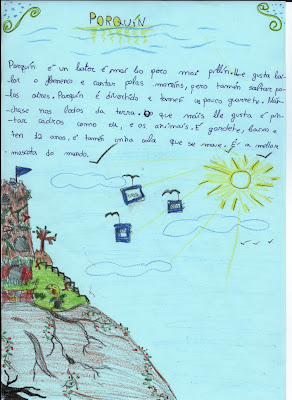 PORQUÍN
Porquín é un lator é mar lo poco mar pillín. Lle gusta bai-
lar o flamenco e cantar polas mañáns, pero tamén saltar po-
los aires. Porquín é divertido e tamén un pouco guarrete. Man-
chase nos lodos da terra. O que máis lle gusta é pin-
tar cadros como el, e os animais. É gordete, baixo e
ten 12 anos, e tamén unha cola que se move. É a mellor
mascota do mundo.